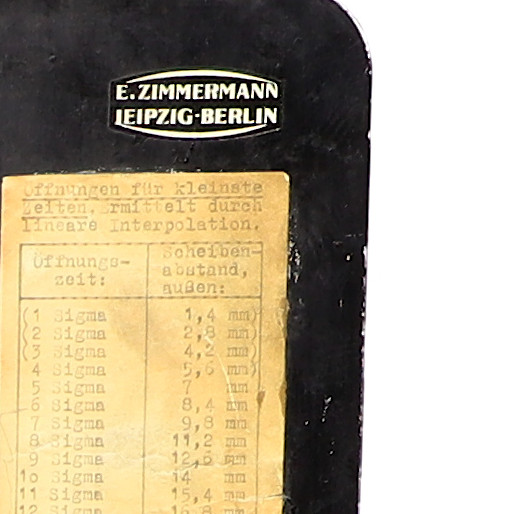 E. ZIMMERMANN
LEIPZIG-BERLIN
Öffnungen für kleinste
Zeiten, ermittelt durch
lineare Interpolation.
Öffnungs-
zeit:
Scheiben-
abstand,
außen:
(1 Sigma 1,4 mm)
(2 Sigma 2,8 mm)
(3 Sigma 4,2 mm)
4 Sigma 5,6 mm)
5 Sigma 7 mm
6 Sigma 8,4 mm
7 Sigma 9,8 mm
8 Sigma 11,2 mm
9 Sigma 12,6 mm
10 Sigma 14 mm
11 Sigma 15,4 mm
12 Sigma 16,8 mm